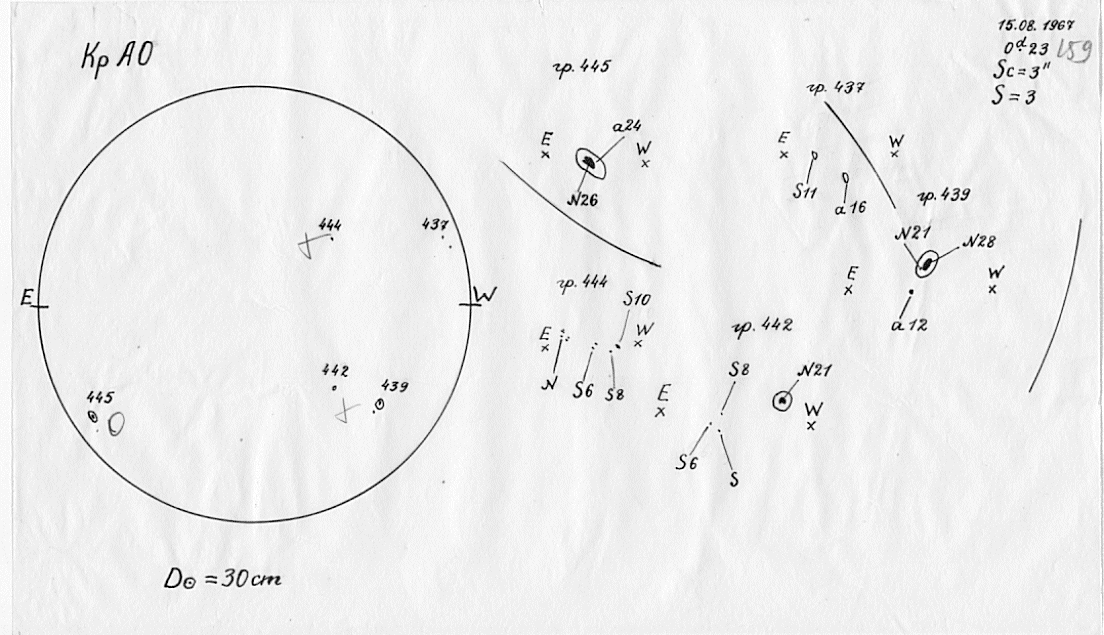 Кр АО
15.08.1967
0ᵈ23 159
Sc=3"
S=3
гр. 445
E
a24
W
N26
гр. 437
E
W
S11
a16
гр. 439
N21
N28
E
W
a12
444
437
E
W
442
439
445
гр. 444
S10
E
W
N
S6
S8
гр. 442
E
S8
N21
W
S6
S
D⊙ = 30 cm